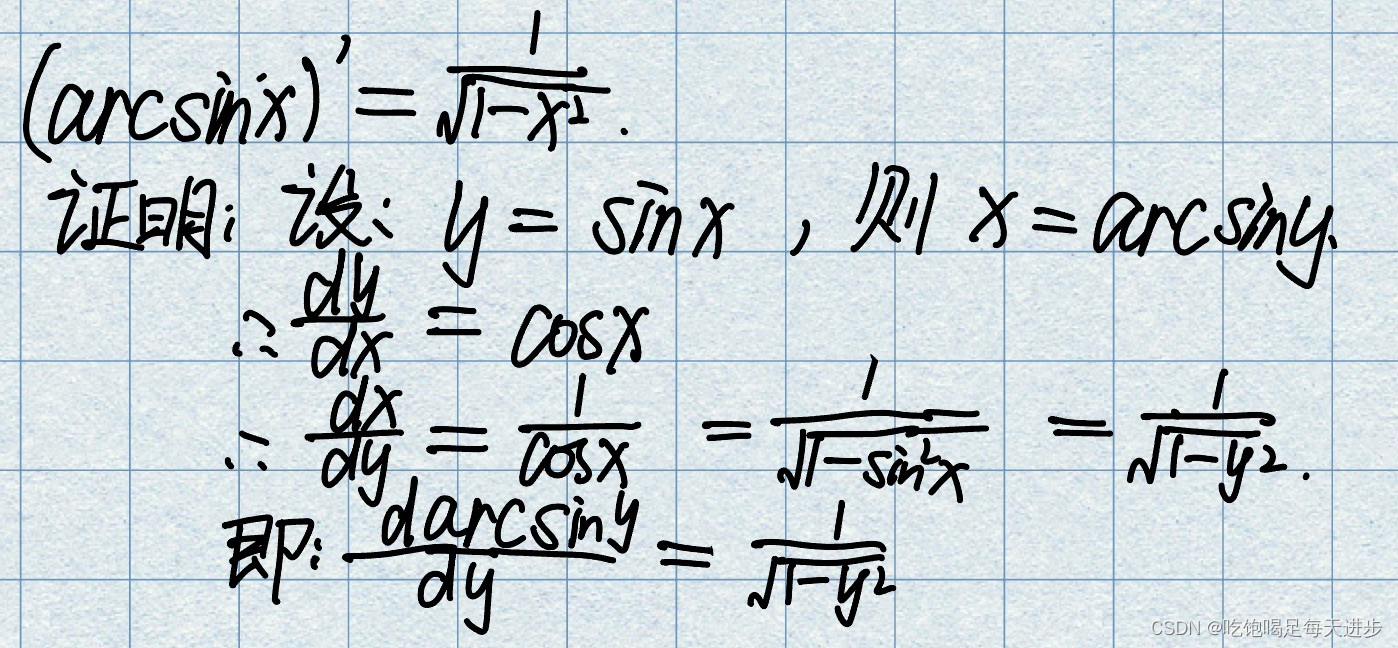 (arcsinx)' = 1/√(1-x²).
证明: 设: y = sinx , 则 x = arcsiny.
∴ dy/dx = cosx
∴ dx/dy = 1/cosx = 1/√(1-sin²x) = 1/√(1-y²).
即: darcsiny/dy = 1/√(1-y²)
CSDN @吃饱喝足每天进步